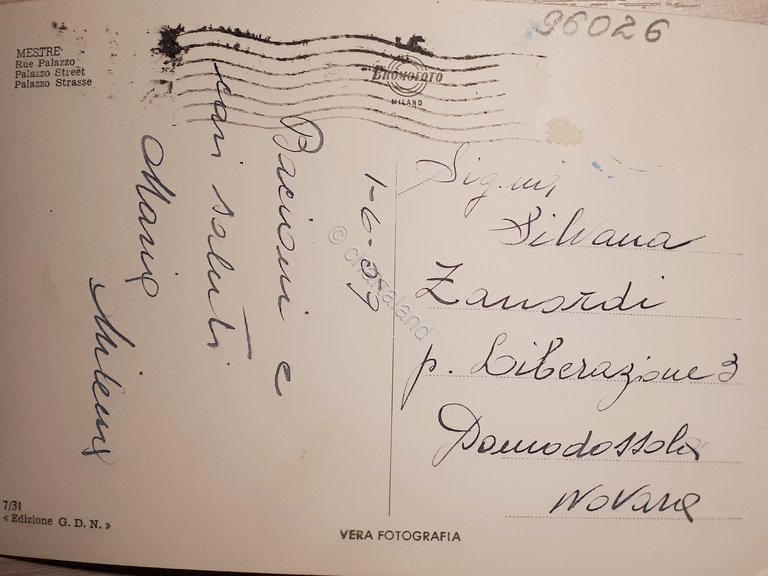 MESTRE
Rue Palazzo
Palazzo Street
Palazzo Strasse
BROMOFOTO
MILANO
96026
1-6-59
Bacioni e
cari saluti
Maria
Milena
Sig.na
Silvana
Zanardi
p. Liberazione 3
Domodossola
Novara
© cartaland
7/31
« Edizione G. D. N. »
VERA FOTOGRAFIA